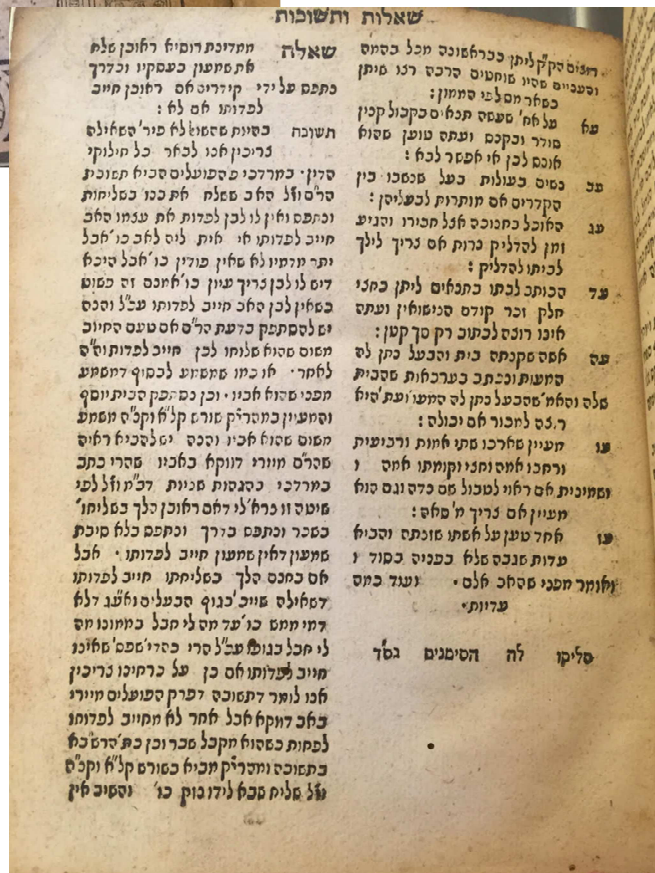 שאלות ותשובות
רוצים הק"ק ליתן כבראשונה מכל בהמה
והעניים שהיו שוחטים הרבה רצו שיתן
כשאר מס לפי הממון :
עא על אח' שעשה תנאים בקבול קנין
סודר ובקנס ועתה טוען שהוא
אונס לכן אי אפשר לבא :
עב נשים בעולות בעל שנשבו בין
הקדרים אם מותרות לבעליהן :
עג האוכל בחנוכה אצל חבירו והגיע
זמן להדליק נרות אם צריך לילך
לביתו להדליק :
עד הכותב לבתו בתנאים ליתן כחצי
חלק זכר קודם הנישואין ועתה
אינו רוצה לכתוב רק סך קטן :
עה אשה שקנתה בית והבעל נתן לה
המעות ונכתב בערכאות שהבית
שלה והאמ' שהבעל נתן לה המעו' ועת' היא
רוצה למכור אם יכולה :
עו מעיין שארכו שתי אמות ורביעית
ורחבו אמה וחצי וקומתו אמה ו
ושמינית אם ראוי לטבול שם נדה וגם הוא
מעיין אם צריך מ' סאה :
עז אחד טען על אשתו שזנתה והביא
עדות שגבה שלא בפניה בסוד ו
ואומר מפני שהאב אלם • ועוד כמה
עדיות •
סליקו לה הסימנים בס"ד
שאלה ממדינת רוסיא ראובן שלח
את שמעון בעסקיו ובדרך
נתפס על ידי קידרים אם ראובן חייב
לפדותו אם לא :
תשובה בהיות שהשוא' לא פיר' השאילה
צריכין אנו לבאר כל חילוקי
הדין • במרדכי פ' הפועלים הביא תשובת
הר"ם וז"ל האב ששלח את בנו בשליחות
ונתפס ואין לו לבן לפדות את עצמו האב
חייב לפדותו אי אית ליה לאב כו' אבל
יתר מדמיו לא שאין פודין כו' אבל היכא
דיש לו לבן צריך עיון כו' אמנם זה פשוט
כשאין לבן האב חייב לפדותו עכ"ל והנה
יש להסתפק בדעת הר"ם אם טעם החיוב
משום שהוא שלוחו לכן חייב לפדות וה"ה
לאחר • או כמו שמשמע לכסוף דמשמע
מפני שהוא אביו • וכן נסתפק הבית יוסף
והמעיין במהרי"ק שורש קל"א וקנ"ה משמע
משום שהוא אביו והנה יש להביא ראיה
שהר"ם מיירי דווקא באביו שהרי כתב
במרדכי בהגהות שניות דב"מ וז"ל לפי
שיטה זו נרא' לי דאם ראובן הלך בשליחו'
בשכר ונתפס בדרך ונתפס בלא סיבת
שמעון דאין שמעון חייב לפדותו • אבל
אם בחנם הלך בשליחתו חייב לפדותו
דשאילה שייכ' בגוף הבעלים ואע"ג דלא
דמי ממש כו' עד מה לי חבל בממונו מה
לי חבל בגופו עכ"ל הרי בהדי' שפס' שאינו
חייב לפדותו אם כן על כרחינו צריכין
אנו לומר דתשובה דפרק הפועלים מיירי
באב דווקא אבל אחר לא מחוייב לפדותו
לפחות כשהוא מקבל שכר וכן כת' הרשב"א
בתשובה ומהרי"ק מביא בשורש קל"א וקנ"ה
וז"ל שליח שבא לידו נזק כו' והשיב אין